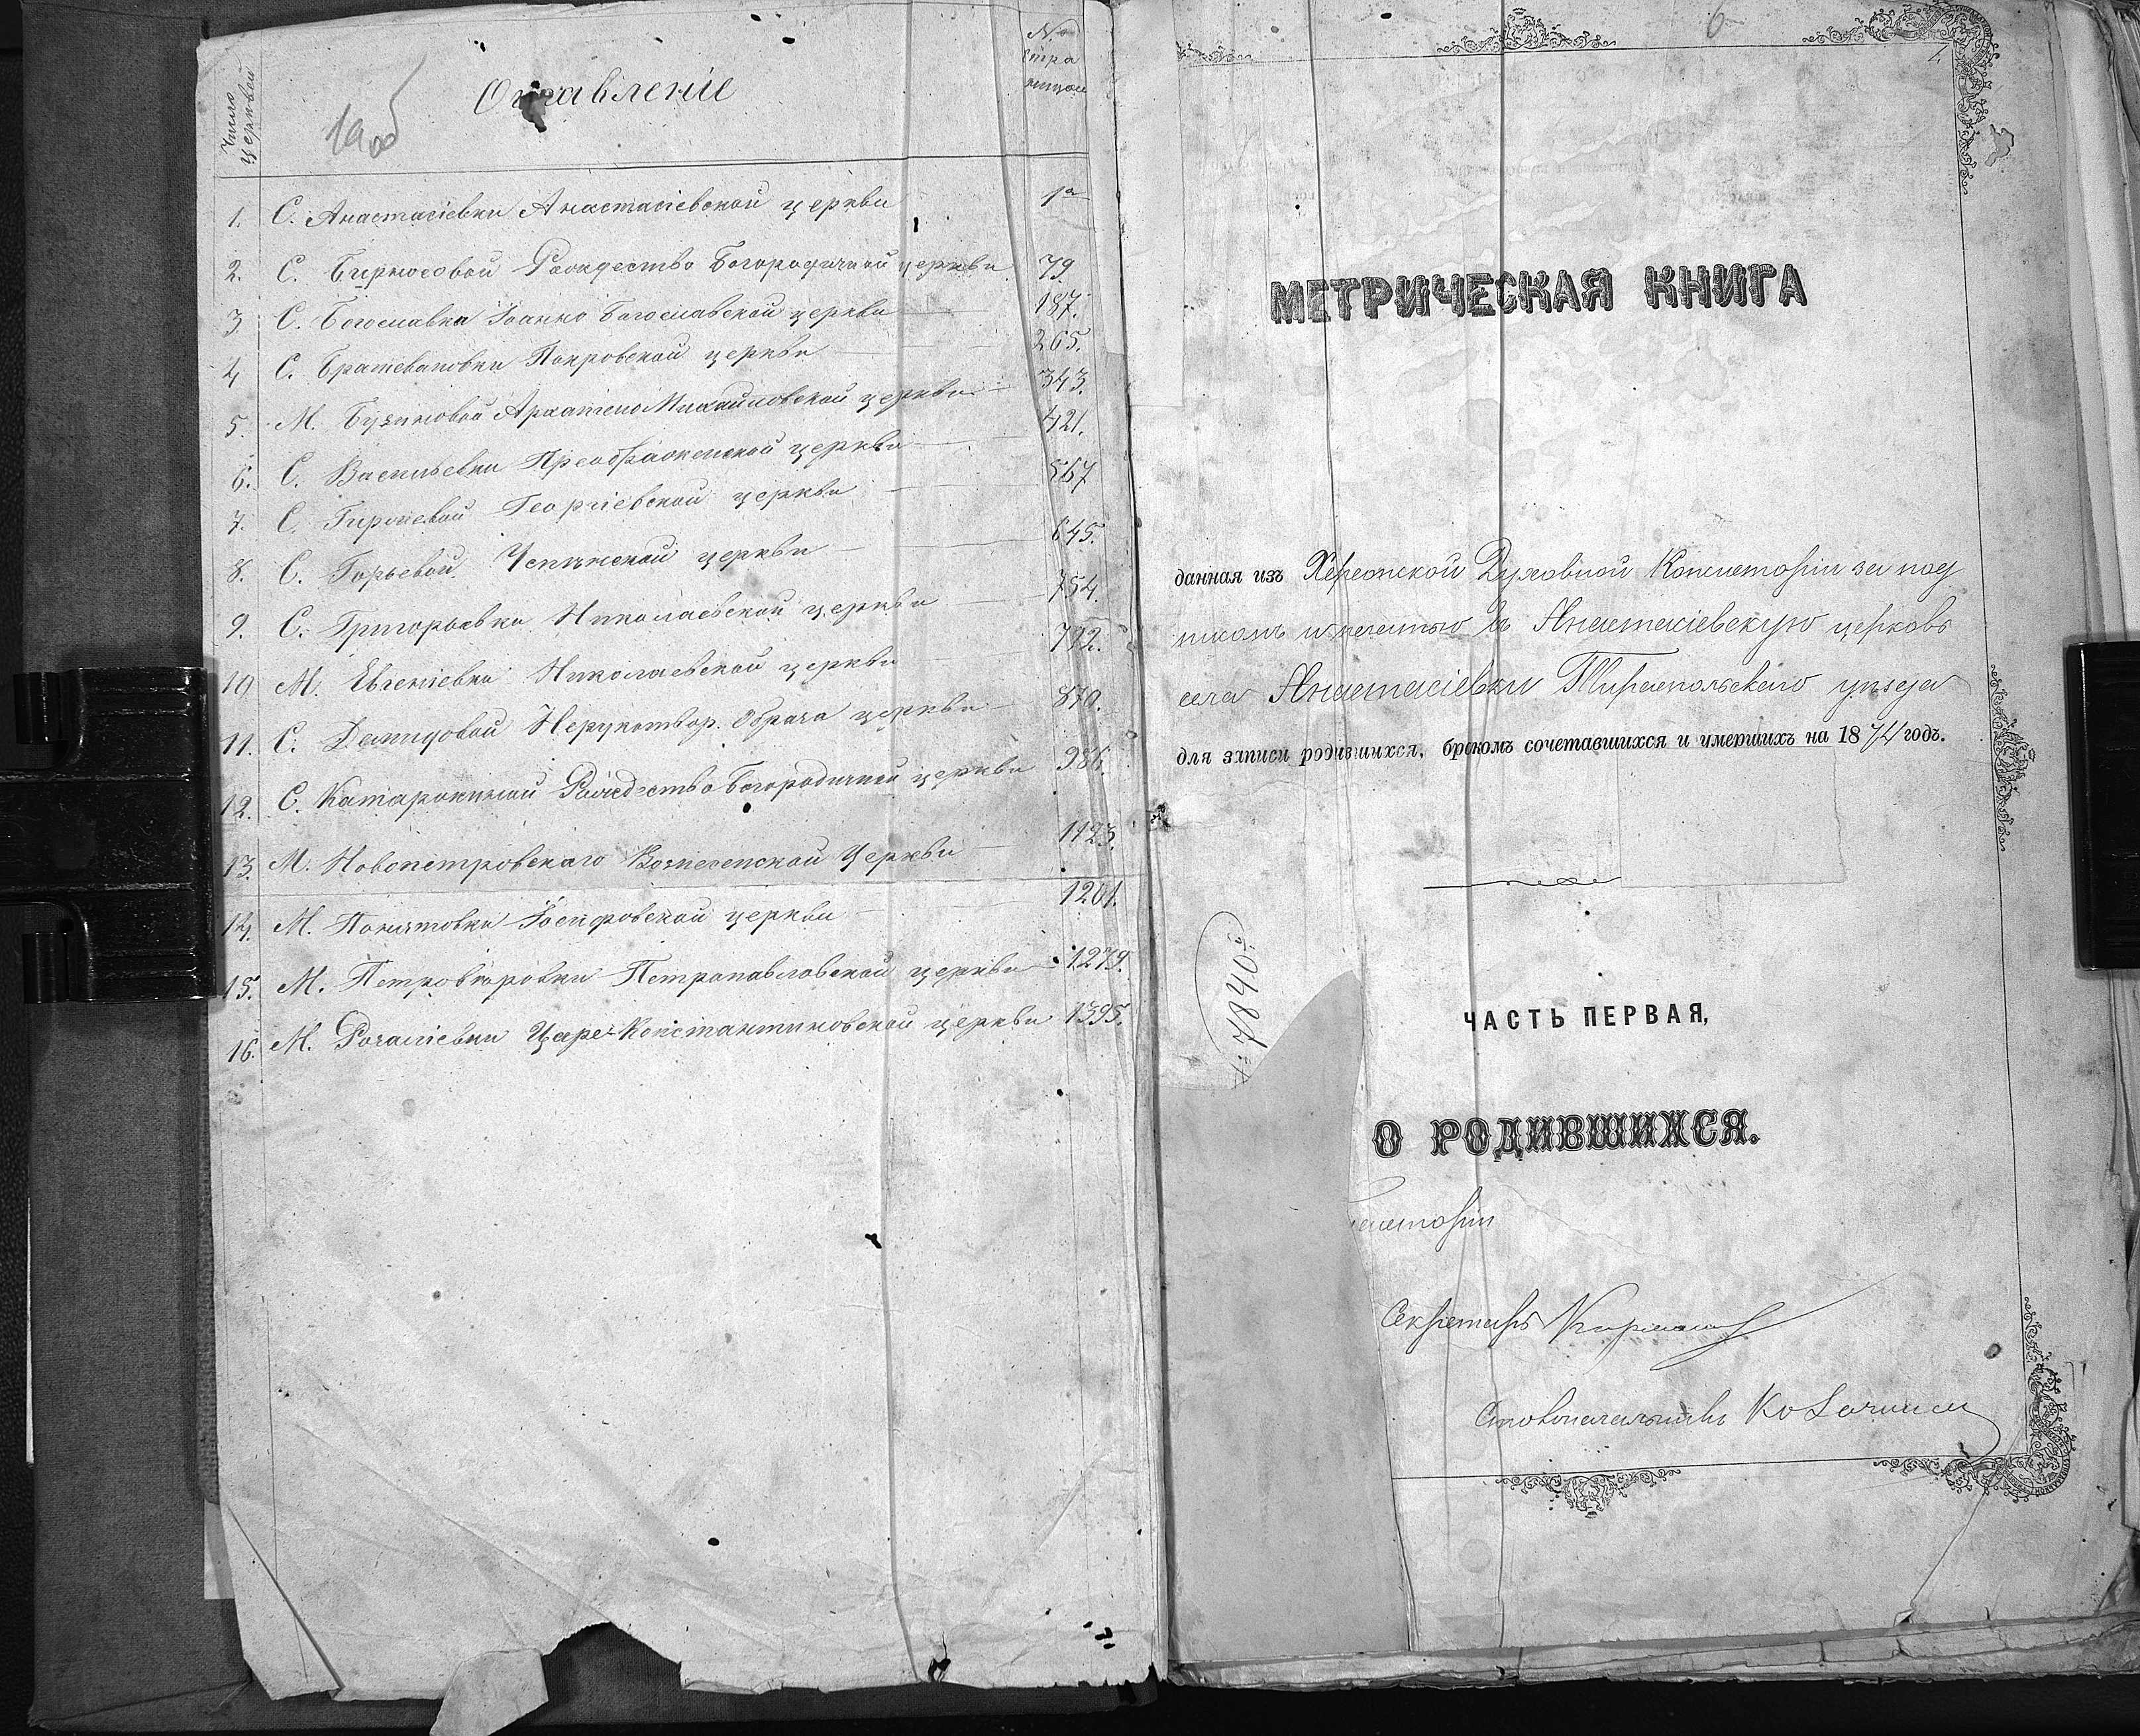 Число церквей
Оглавленіе
№ страницы
1. С. Анастасіевки Анастасіевской церкви 1
2. С. Бирносовой Рождество Богородичной церкви 79.
3 С. Богославка Іоанно Богославской церкви 187.
4 С. Братевановки Покровской церкви 265.
5. М. Бузиновой Архангело Михайловской церкви 343.
6. С. Васильевки Преображенской церкви 421.
7. С. Гиржевой Георгіевской церкви 567
8. С. Горьевой Успенской церкви 645.
9. С. Григорьевка Николаевской церкви 754.
10 М. Евгеніевки Николаевской церкви 792.
11. С. Демидовой Нерукотвор. Образа церкви 870.
12. С. Катаржиной Рождество Богородичной церкви 986.
13. М. Новопетровскаго Вознесенской Церкви 1123.
14. М. Понятовки Іосифовской церкви 1201.
15. М. Петровѣровки Петропавловской церкви 1279.
16. М. Розаліевки Царе-Константиновской церкви 1395.
6
МЕТРИЧЕСКАЯ КНИГА
данная изъ Херсонской Духовной Консисторіи за под
писомъ и печатью въ Анастасіевскую церковь
села Анастасіевки Тираспольскаго уѣзда
для записи родившихся, бракомъ сочетавшихся и умершихъ на 1874 годъ.
№ 7840
ЧАСТЬ ПЕРВАЯ,
О РОДИВШИХСЯ.
систоріи
Секретарь
Столоначальникъ